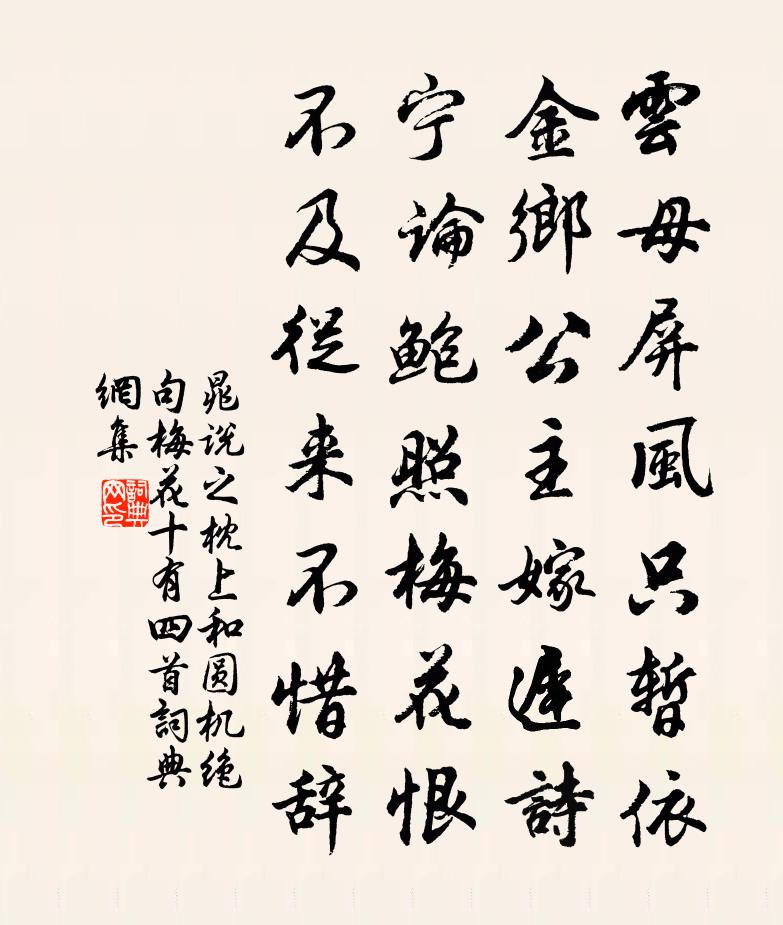 雲母屏風只暫依
金鄉公主嫁遲詩
宁論鲍照梅花恨
不及従来不惜辞
晁说之枕上和圆机绝
句梅花十有四首詞典
網集
詞典
网印